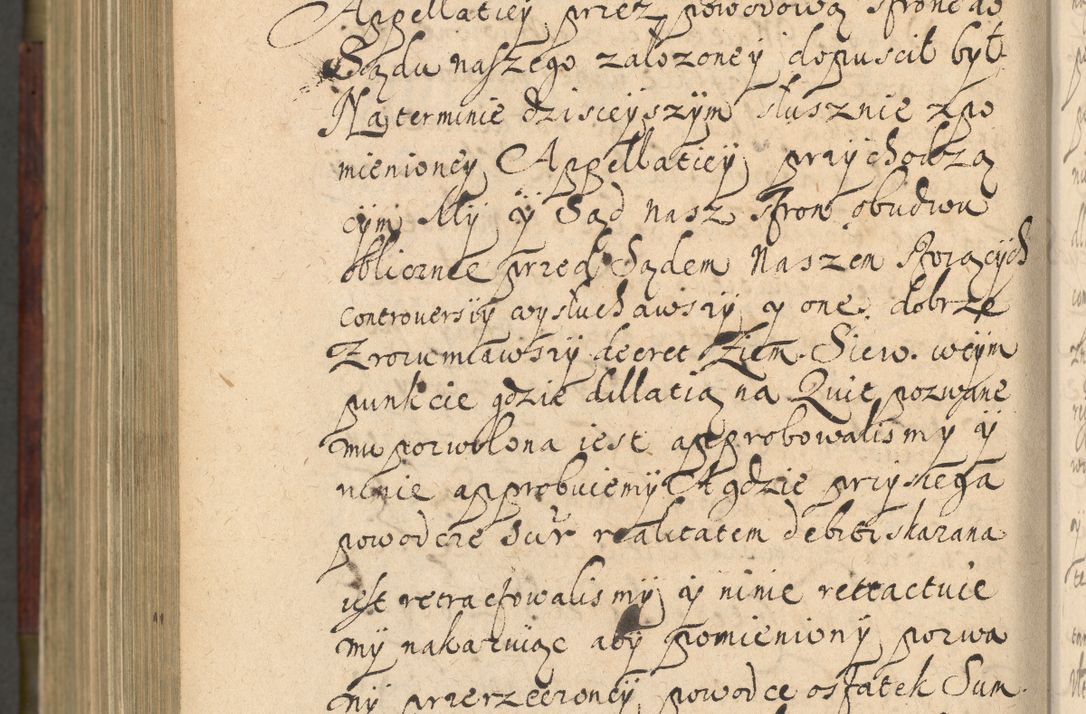 Appellatiey przez powodową stronę do
Sądu naszego założoney dopuscił był
Na terminie dzisieyszym słusznie z po
mienioney Appellatiey przychodzą
cym My y Sąd nasz stron obudwu
oblicznie przed Sądem naszem stoiących
controuersyy wysłuchawszy y one dobrze
zrozumiawszy decret Ziem. Siew. w tym
punkcie gdzie dillatią na Quit pozwane
mu pozwolona iest approbowalismy y
ninie approbuiemy A gdzie przysięga
powodcze Sur realitatem debiti skazana
iest retractowalismy y ninie retractuie
my nakazuiąc aby pomieniony pozwa
ny przerzeczoney powodce ostatek Sum